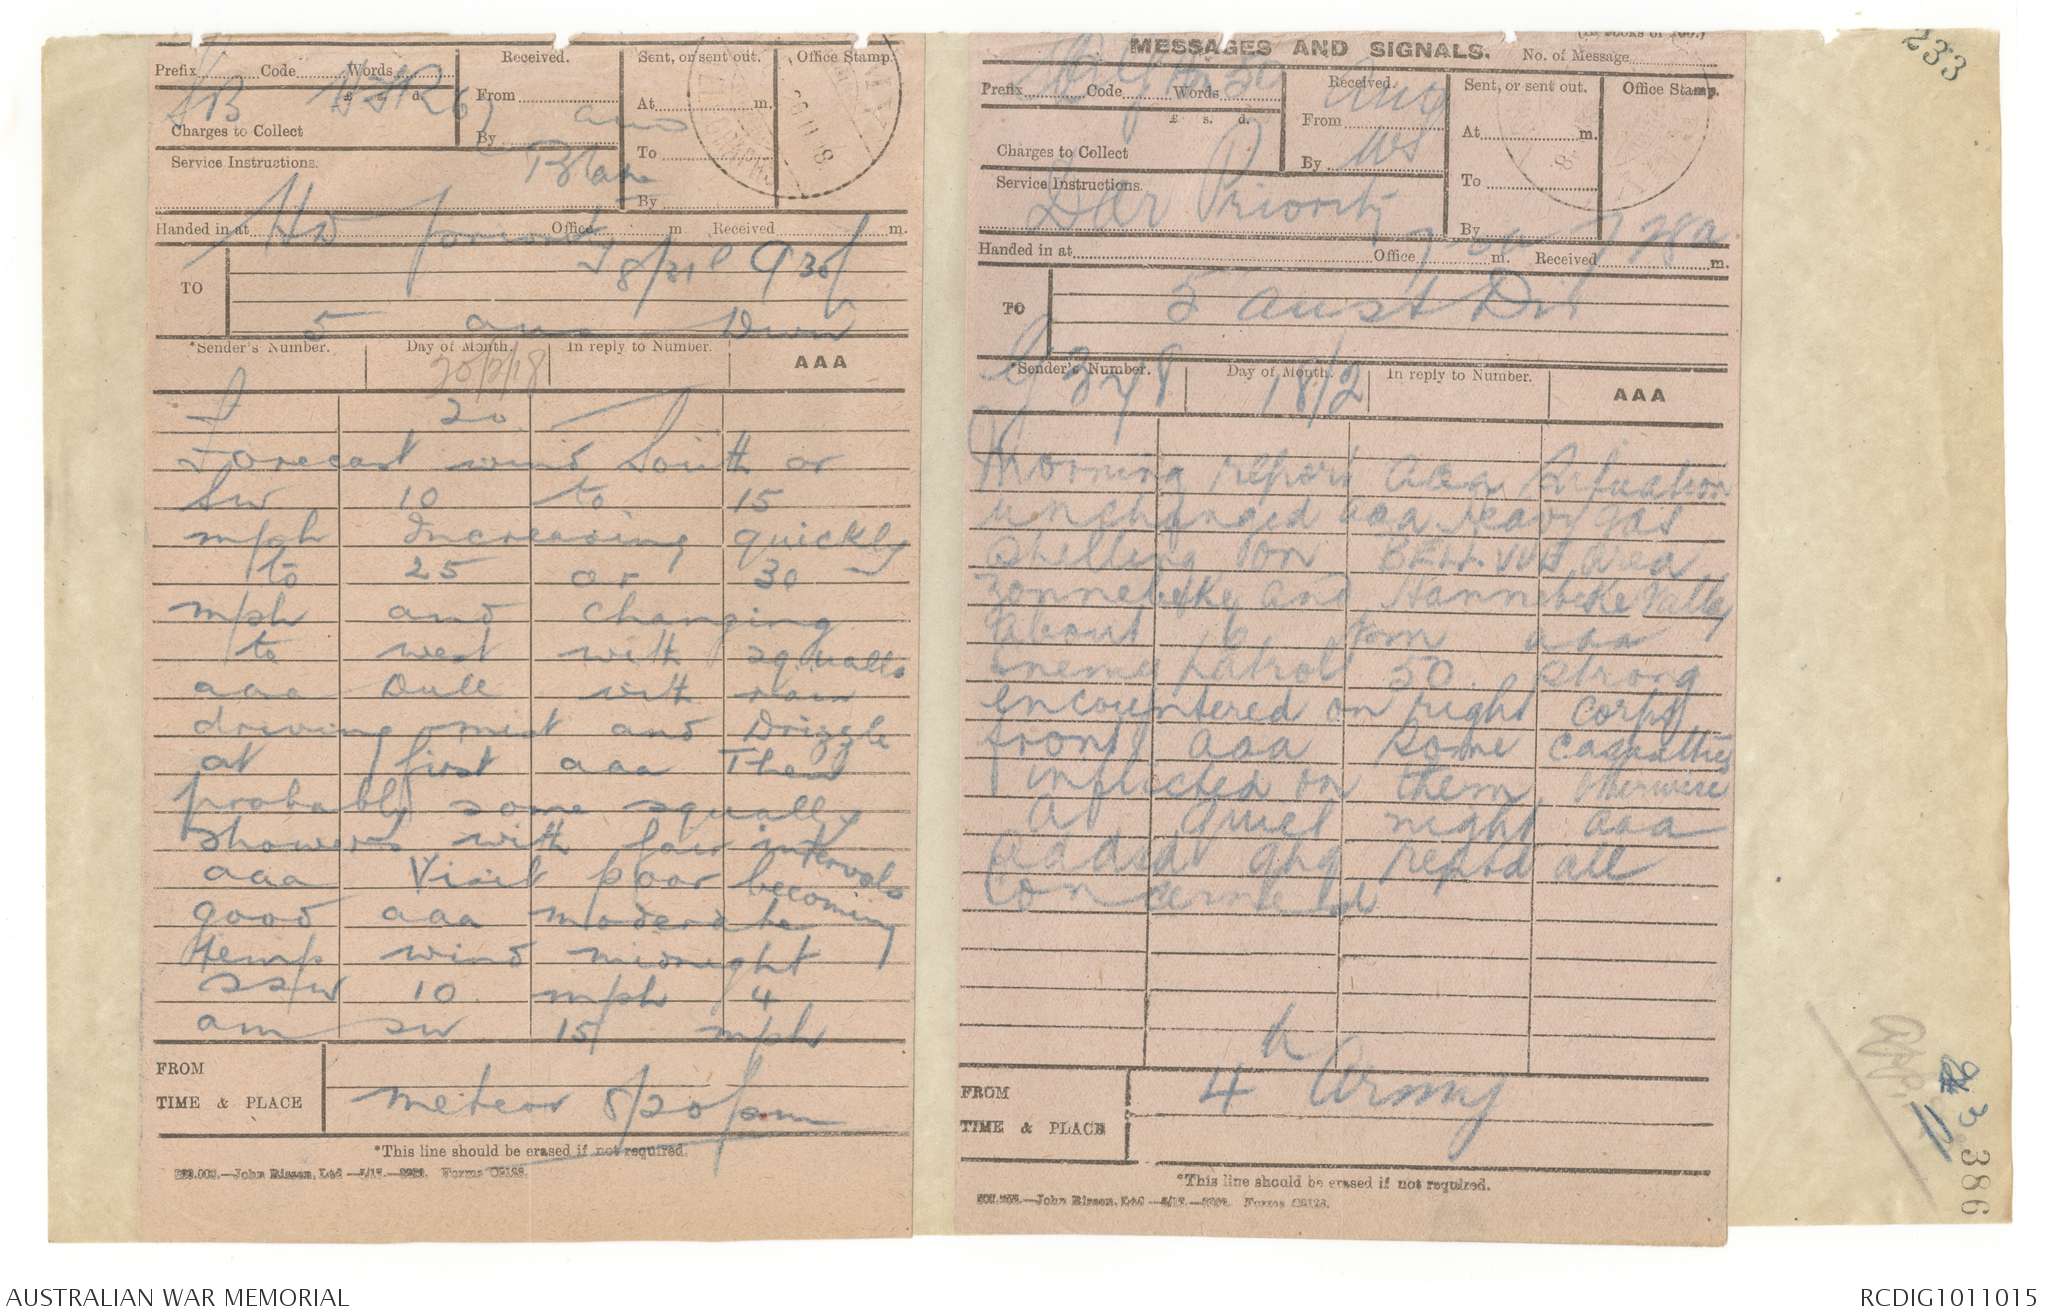 Prefix Code Words
£ s d.
Charges to Collect
Service Instructions.
Received.
From
By
Sent, or sent out.
At m.
To
By
Office Stamp.
Handed in at Office m Received m.
priority
8/31 930
TO
5 Aus Divn
*Sender's Number. Day of Month. In reply to Number. AAA
20/2/18
20
Forecast wind South or
SW 10 to 15
mph Increasing quickly
to 25 or 30
mph and changing
to west with squalls
aaa Dull with rain
driving mist and Drizzle
at first aaa Then
probably some squally
showers with fair intervals
aaa Visib poor becoming
good aaa moderate
temp wind midnight
SSW 10 mph 4
am SW 15 mph
FROM
TIME & PLACE
Meteor 8/20/pm
*This line should be erased if not required.
MESSAGES AND SIGNALS.
No. of Message
Prefix Code Words
£ s. d.
Charges to Collect
Service Instructions.
Received.
From
By
Sent, or sent out.
At m.
To
By
Office Stamp.
Priority
Handed in at Office m. Received m.
TO
5 Aust Div
*Sender's Number. Day of Month. In reply to Number. AAA
G 378 18/2
Morning report aaa Situation
unchanged aaa heavy gas
shelling on BELLVUE area
Zonnebeke and Hannebeke Valley
about 6 pm aaa
enemy patrol 50 strong
encountered on right corps
front aaa some casualties
inflicted on them otherwise
a quiet night aaa
added ghq reptd all
concerned
FROM
TIME & PLACE
4 Army
*This line should be erased if not required.
233
386
AUSTRALIAN WAR MEMORIAL
RCDIG1011015